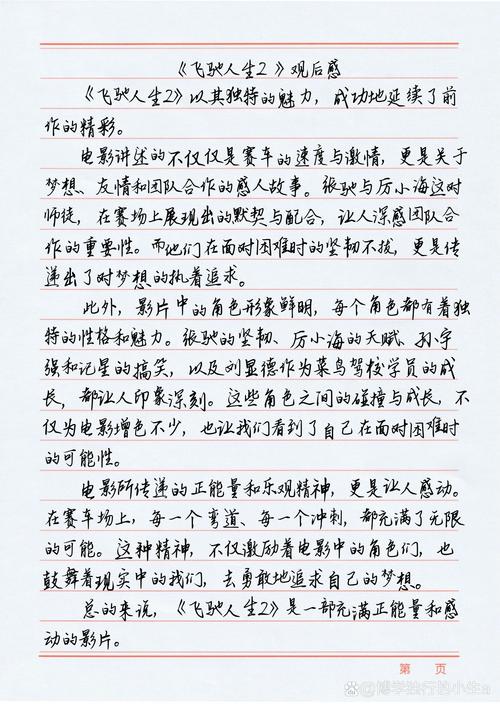 《飞驰人生2》观后感
《飞驰人生2》以其独特的魅力，成功地延续了前
作的精彩。
电影讲述的不仅仅是赛车的速度与激情，更是关于
梦想、友情和团队合作的感人故事。张驰与厉小海这对
师徒，在赛场上展现出的默契与配合，让人深感团队合
作的重要性。而他们在面对困难时的坚韧不拔，更是传
递出了对梦想的执着追求。
此外，影片中的角色形象鲜明，每个角色都有着独
特的性格和魅力。张驰的坚韧、厉小海的天赋、孙宇
强和记星的搞笑，以及刘显德作为菜鸟驾校学员的成
长，都让人印象深刻。这些角色之间的碰撞与成长，不
仅为电影增色不少，也让我们看到了自己在面对困难时
的可能性。
电影所传递的正能量和乐观精神，更是让人感动。
在赛车场上，每一个弯道、每一个冲刺，都充满了无限
的可能。这种精神，不仅激励着电影中的角色们，也
鼓舞着现实中的我们，去勇敢地追求自己的梦想。
总的来说，《飞驰人生2》是一部充满正能量和感
动的影片。
第 页
@博学独行的小生a